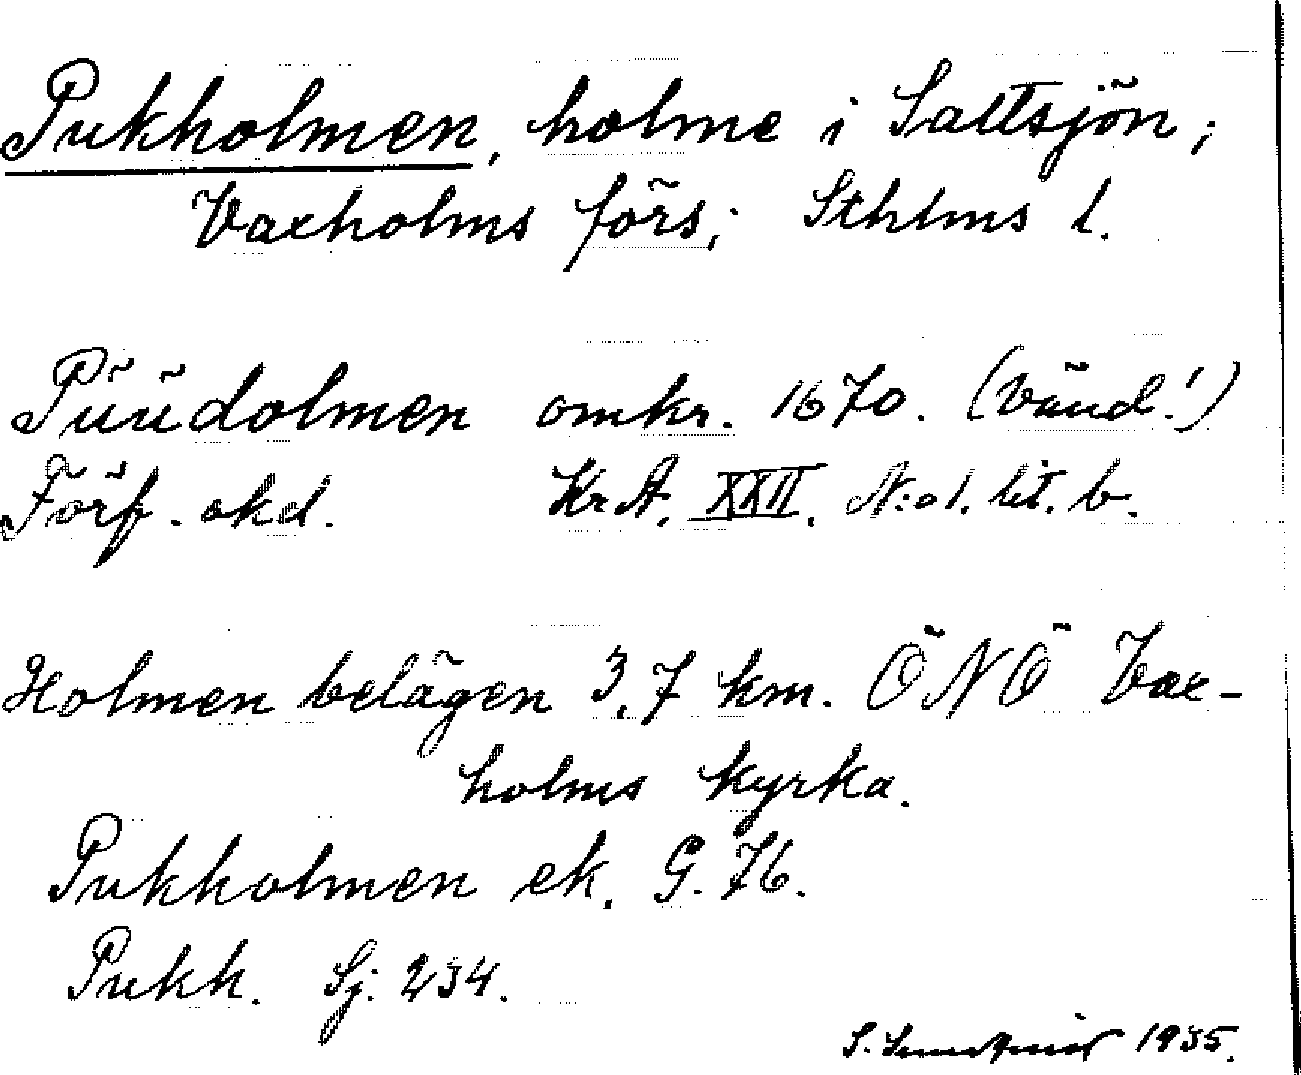 Pukholmen, holme i Saltsjön;
Vaxholms förs; Sthlms l.
Püüdolmen omkr. 1670. (Vänd!)
Förf. okd. Kr A. XXII. N:o 1. lit. b.
Holmen belägen 3,7 km. ÖNÖ Vax-
holms kyrka.
Pukholmen ek. G. 76.
Pukh. Sj. 234.
S. 1935.